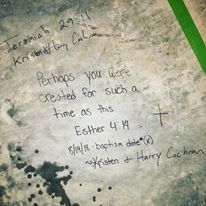 Jeremiah 29:11
Perhaps you were
created for such a
time as this
Esther 4:14
8/19/18 - baptism date
Kristen & Harry Cochran